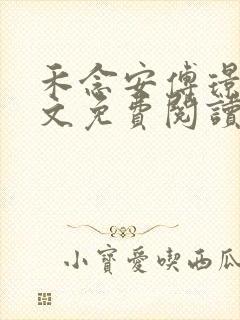 禾念安傅璟
文免費閱讀
小寶愛喫西瓜